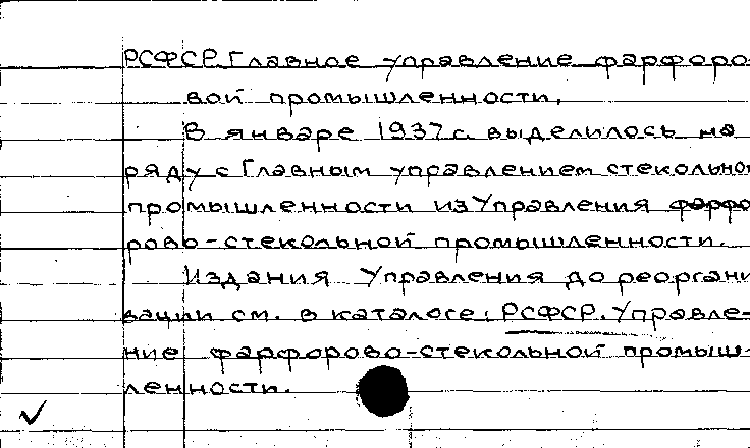 РСФСР. Главное управление фарфоро-
вой промышленности.
В январе 1937 г. выделилось на
ряду с Главным управлением стекольной
промышленности из Управления фарфо-
рово-стекольной промышленности.
Издания Управления до реоргани
зации см. в каталоге: РСФСР. Управле-
ние фарфорово-стекольной промыш-
ленности.